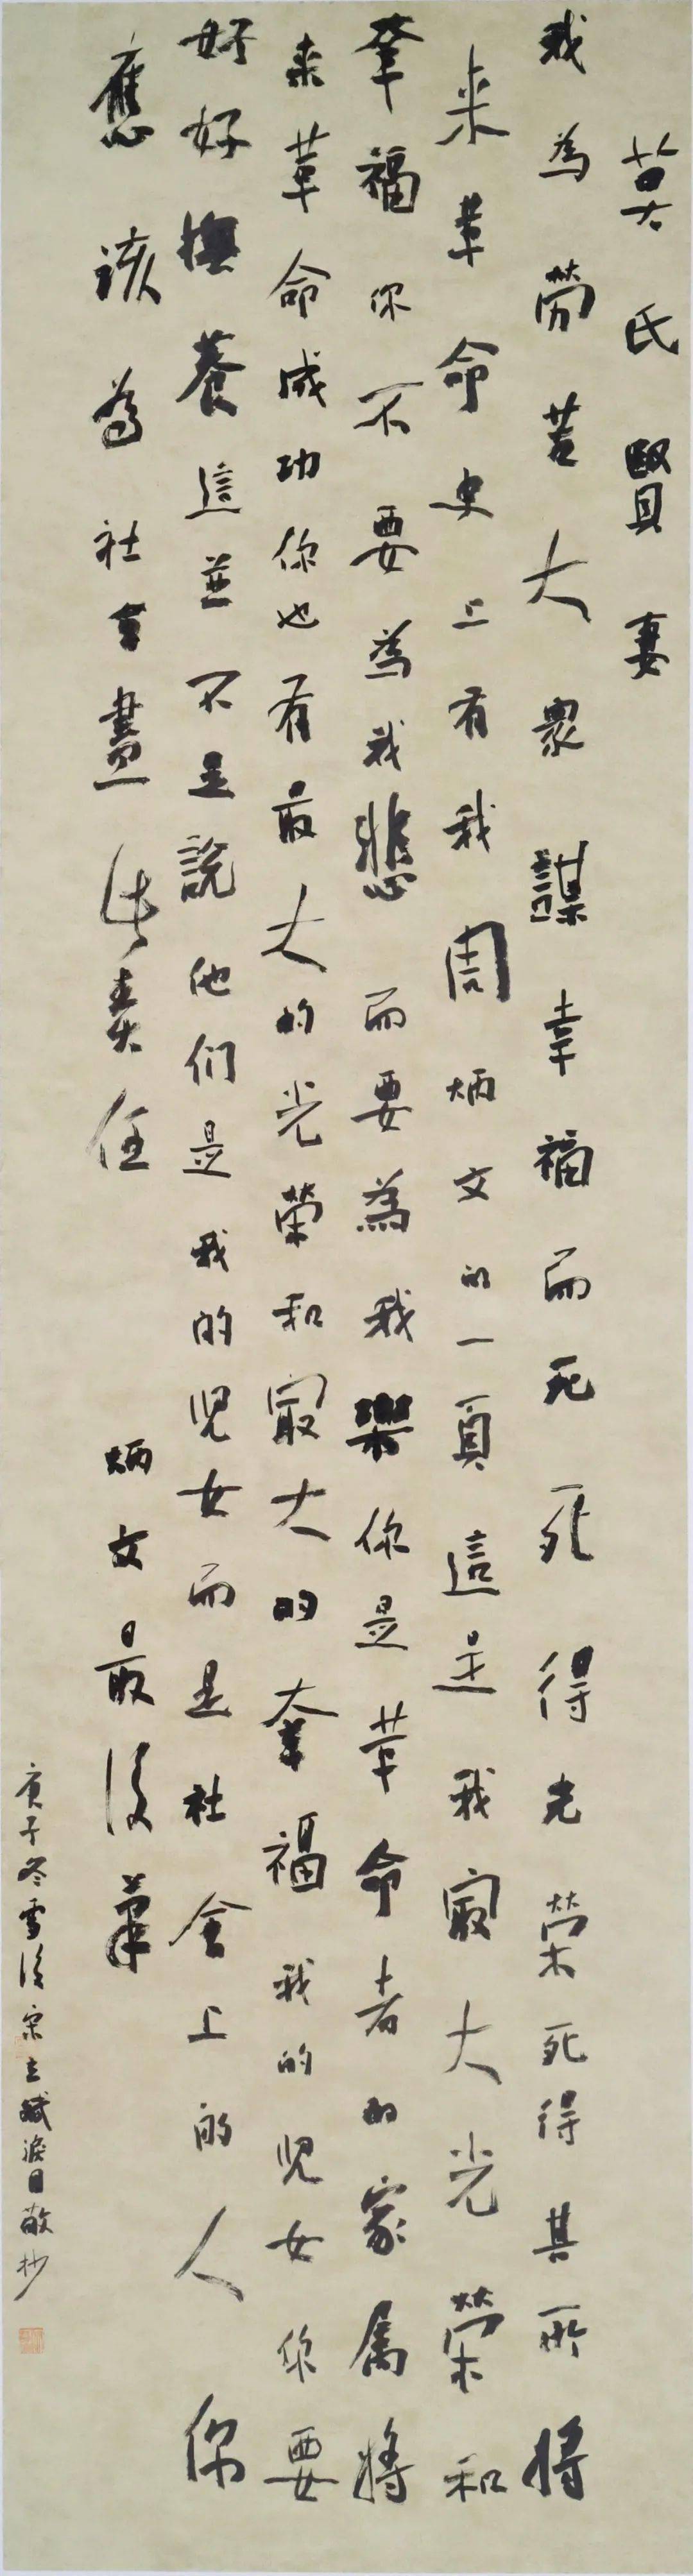 莫氏賢妻
我為勞苦大衆謀幸福而死死得光榮死得其所將
来革命史上有我周炳文的一頁這是我最大光榮和
幸福你不要為我悲而要為我樂你是革命者的家属將
来革命成功你也有最大的光榮和最大的幸福我的児女你要
好好撫養這並不是說他们是我的児女而是社会上的人你
應該為社会盡此責任 炳文最後筆
庚子冬雪後宋立敬抄